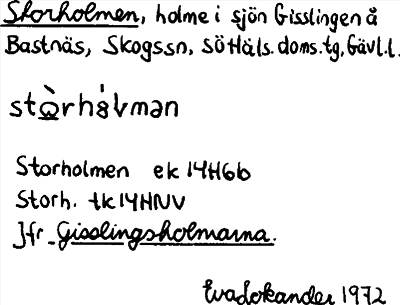 Storholmen, holme i sjön Gisslingen å
Bastnäs, Skogssn, SöHäls.doms.tg, Gävl.l.
Storholmen ek 14H6b
Storh. tk 14HNV
Jfr Gisslingsholmarna.
Eva Lokander 1972